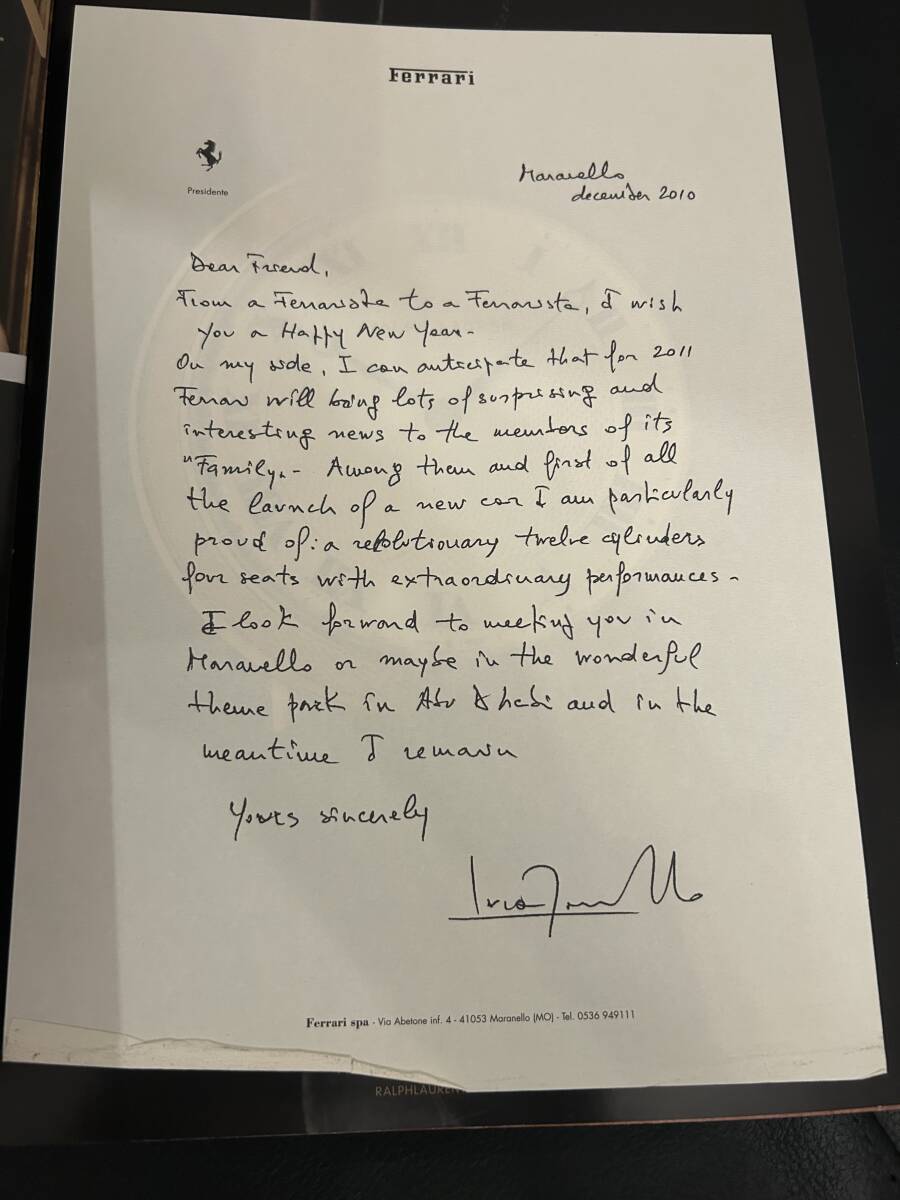 Ferrari
Presidente
Maranello
december 2010
Dear Friend,
From a Ferrarista to a Ferrarista, I wish
you a Happy New Year-
On my side, I can anticipate that for 2011
Ferrari will bring lots of surprising and
interesting news to the members of its
"Family"- Among them and first of all
the launch of a new car I am particularly
proud of: a revolutionary twelve cylinders
four seats with extraordinary performances-
I look forward to meeting you in
Maranello or maybe in the wonderful
theme park in Abu Dhabi and in the
meantime I remain
Yours sincerely
Ferrari spa - Via Abetone inf. 4 - 41053 Maranello (MO) - Tel. 0536 949111
RALPHLAUREN